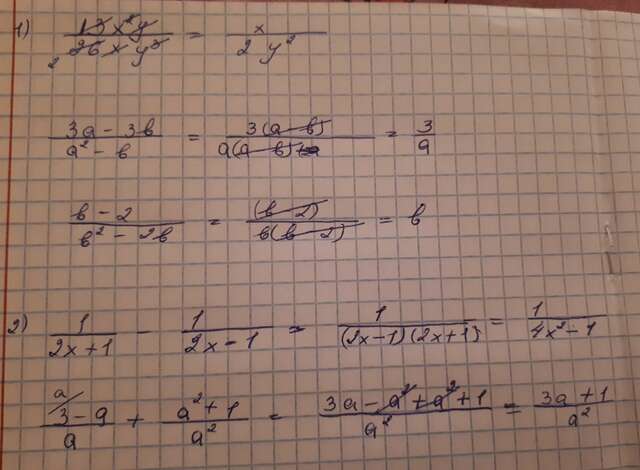 1) 13x²y / 26xy³ = x / 2y²
2
3a - 3b / a² - b = 3(a - b) / a(a - b) = 3 / a
b - 2 / b² - 2b = (b - 2) / b(b - 2) = b
2) 1 / 2x+1 - 1 / 2x-1 = 1 / (2x-1)(2x+1) = 1 / 4x²-1
a/ 3-a / a + a²+1 / a² = 3a-a²+a²+1 / a² = 3a+1 / a²